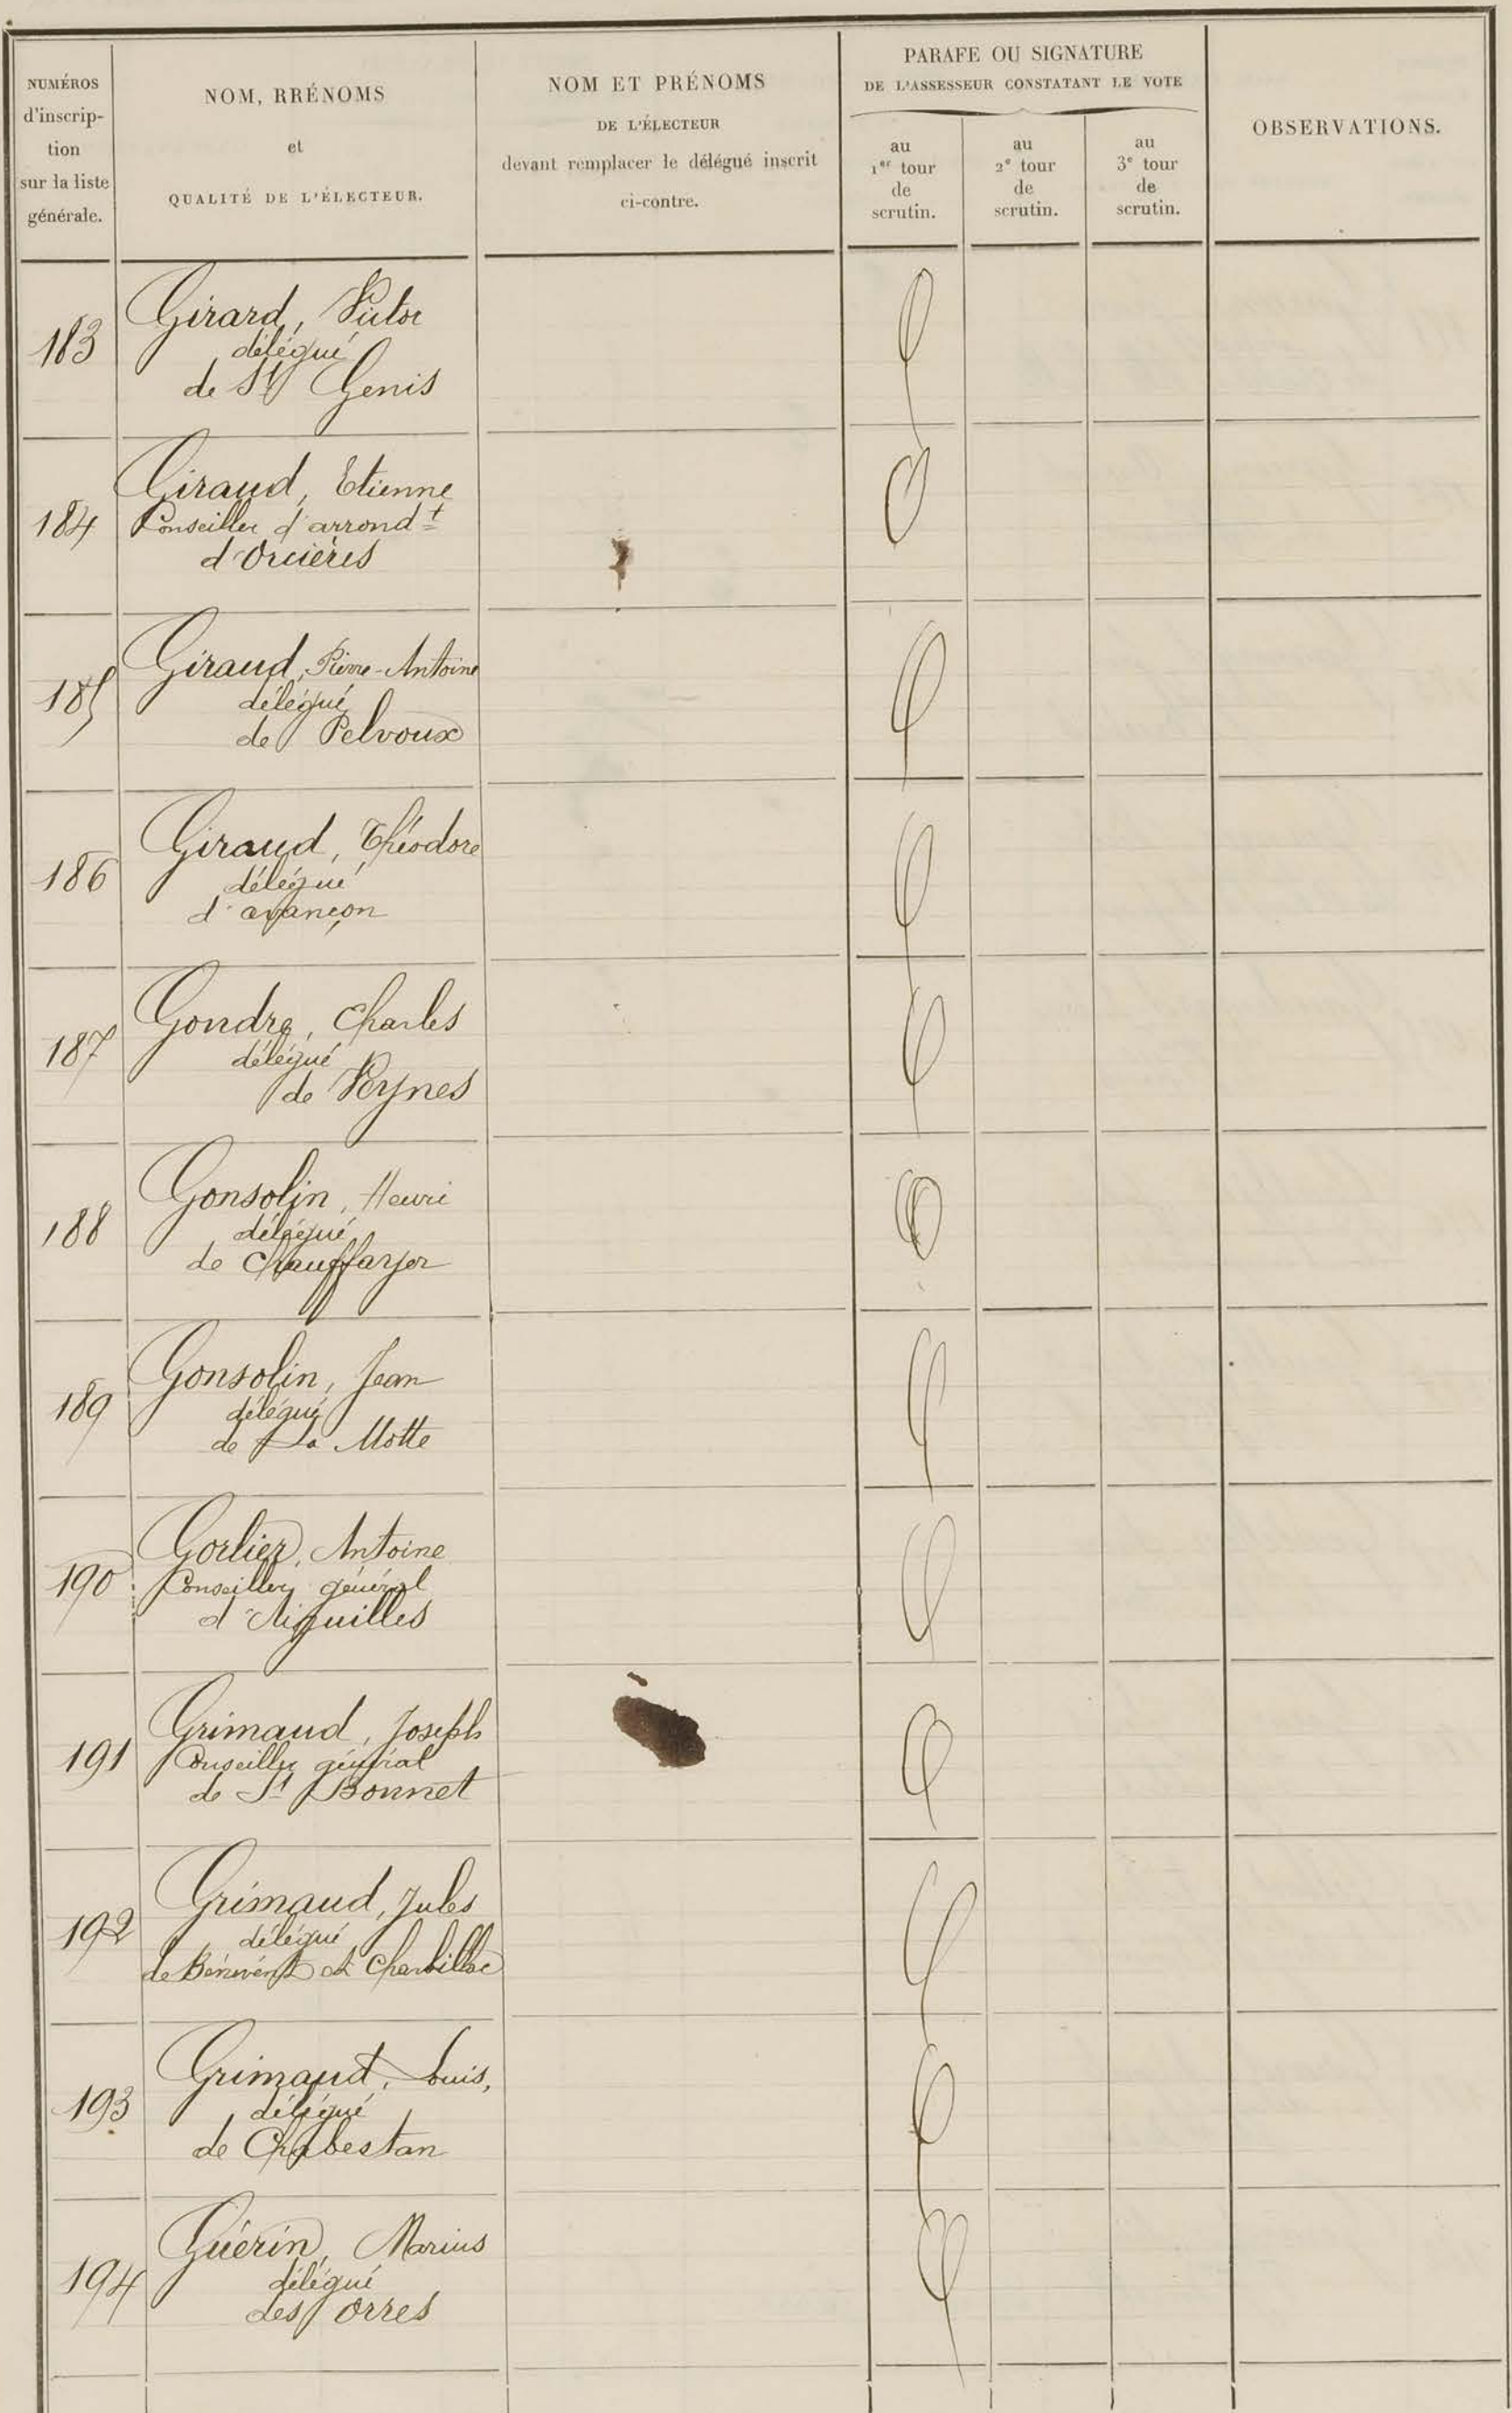 NUMÉROS
d'inscrip-
tion
sur la liste
générale.
NOM, RRÉNOMS
et
QUALITÉ DE L'ÉLECTEUR.
NOM ET PRÉNOMS
DE L'ÉLECTEUR
devant remplacer le délégué inscrit
ci-contre.
PARAFE OU SIGNATURE
DE L'ASSESSEUR CONSTATANT LE VOTE
au
1er tour
de
scrutin.
au
2e tour
de
scrutin.
au
3e tour
de
scrutin.
OBSERVATIONS.
183
Girard, Victor
délégué
de St Genis
184
Giraud, Etienne
Conseiller d'arrondt
d'Orcières
185
Giraud, Pierre-Antoine
délégué
de Pelvoux
186
Giraud, Théodore
délégué
d'avançon
187
Gondre, Charles
délégué
de Veynes
188
Gonsolin, Henri
délégué
de Chauffayer
189
Gonsolin, Jean
délégué
de La Motte
190
Gorlier, Antoine
Conseiller général
d'Aiguilles
191
Grimaud, Joseph
Conseiller général
de St Bonnet
192
Grimaud, Jules
délégué
de Bénévent et Charbillac
193
Grimaud, Louis,
délégué
de Chabestan
194
Guérin, Marius
délégué
des Orres